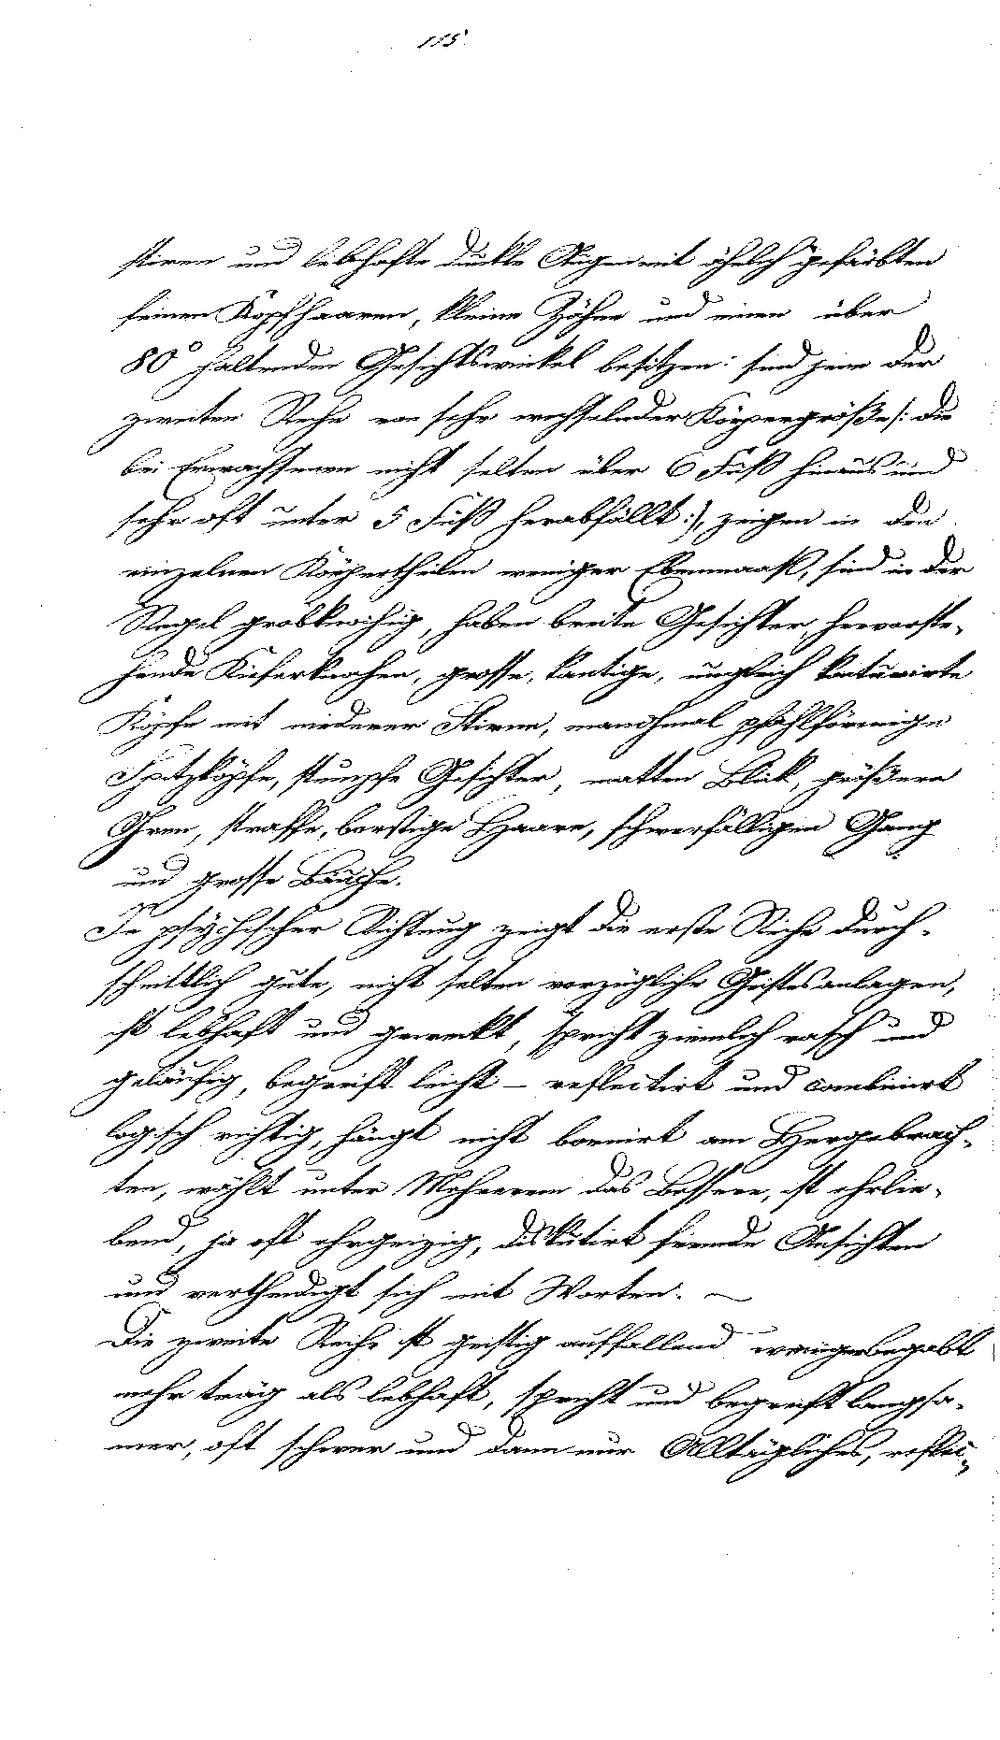 115.
stirnen und lebhafte dunkle Augen mit ähnlich gefärbten
feinen Kopfhaaren, kleine Zähne und einen über
80° haltenden Gesichtswinkel besitzen: sind jene der
zweiten Reihe von sehr wechselnder Körpergröße /: die
bei Erwachsenen nicht selten über 6 Fuß hinaus und
sehr oft unter 5 Fuß herabfällt :/, zeigen in den
einzelnen Körpertheilen weniger Ebenmaaß, sind in der
Regel grobknochig, haben breite Gesichter, hervorste-
hende Kieferknochen, grosse, kantige, ungleich konturirte
Köpfe mit niederer Stirne, manchmal pfahlförmige
Spitzköpfe, stumpfe Gesichter, matten Blick, größere
Ohren, straffe, borstige Haare, schwerfälligen Gang
und grosse Bäuche.
In psychischer Richtung zeigt die erste Reihe durch-
schnittlich gute, nicht selten vorzügliche Geistesanlagen,
ist lebhaft und geweckt, spricht ziemlich rasch und
geläufig, begreift leicht – reflectirt und combinirt
logisch richtig, hängt nicht bornirt am Hergebrach-
ten, wählt unter Mehrerem das Bessere, ist ehrlie-
bend, ja oft ehrgeizig, diskutirt fremde Ansichten
und vertheidigt sich mit Worten. —
Die zweite Reihe ist geistig auffallend weniger begabt
mehr träg als lebhaft, spricht und begreift langsa-
mer, oft schwer und dann nur Alltägliches, reflec-